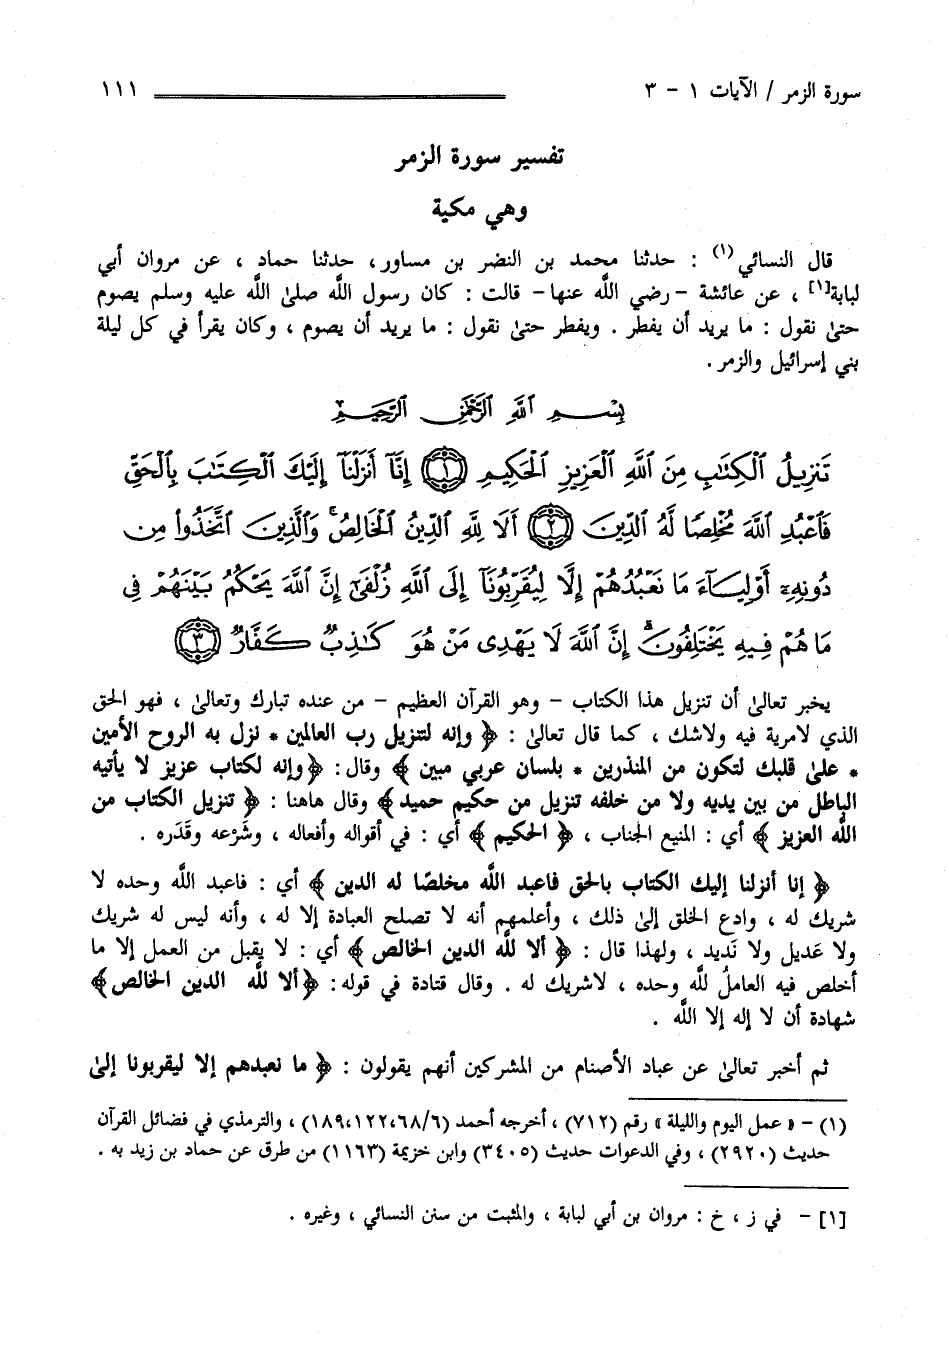 سورة الزمر / الآيات ١ - ٣ ١١١
تفسير سورة الزمر
وهي مكية
قال النسائي(١) : حدثنا محمد بن النضر بن مساور، حدثنا حماد ، عن مروان أبي
لبابة[١] ، عن عائشة - رضي اللَّه عنها - قالت : كان رسول اللَّه صلىٰ اللَّه عليه وسلم يصوم
حتىٰ نقول : ما يريد أن يفطر . ويفطر حتىٰ نقول : ما يريد أن يصوم ، وكان يقرأ في كل ليلة
بني إسرائيل والزمر .
بِسْمِ ٱللَّهِ ٱلرَّحْمَٰنِ ٱلرَّحِيمِ
تَنزِيلُ ٱلْكِتَٰبِ مِنَ ٱللَّهِ ٱلْعَزِيزِ ٱلْحَكِيمِ ﴿١﴾ إِنَّآ أَنزَلْنَآ إِلَيْكَ ٱلْكِتَٰبَ بِٱلْحَقِّ
فَٱعْبُدِ ٱللَّهَ مُخْلِصًا لَّهُ ٱلدِّينَ ﴿٢﴾ أَلَا لِلَّهِ ٱلدِّينُ ٱلْخَالِصُ ۚ وَٱلَّذِينَ ٱتَّخَذُوا۟ مِن
دُونِهِۦٓ أَوْلِيَآءَ مَا نَعْبُدُهُمْ إِلَّا لِيُقَرِّبُونَآ إِلَى ٱللَّهِ زُلْفَىٰٓ إِنَّ ٱللَّهَ يَحْكُمُ بَيْنَهُمْ فِى
مَا هُمْ فِيهِ يَخْتَلِفُونَ ۗ إِنَّ ٱللَّهَ لَا يَهْدِى مَنْ هُوَ كَٰذِبٌ كَفَّارٌ ﴿٣﴾
يخبر تعالىٰ أن تنزيل هذا الكتاب - وهو القرآن العظيم - من عنده تبارك وتعالىٰ ، فهو الحق
الذي لامرية فيه ولاشك ، كما قال تعالىٰ : ﴿ وإنه لتنزيل رب العالمين * نزل به الروح الأمين
* علىٰ قلبك لتكون من المنذرين * بلسان عربي مبين ﴾ وقال: ﴿وإنه لكتاب عزيز لا يأتيه
الباطل من بين يديه ولا من خلفه تنزيل من حكيم حميد﴾ وقال هاهنا : ﴿ تنزيل الكتاب من
اللَّه العزيز ﴾ أي : المنيع الجناب ، ﴿ الحكيم ﴾ أي : في أقواله وأفعاله ، وشَرْعه وقَدَره .
﴿ إنا أنزلنا إليك الكتاب بالحق فاعبد اللَّه مخلصًا له الدين ﴾ أي : فاعبد اللَّه وحده لا
شريك له ، وادع الخلق إلىٰ ذلك ، وأعلمهم أنه لا تصلح العبادة إلا له ، وأنه ليس له شريك
ولا عَديل ولا نَديد ، ولهذا قال : ﴿ ألا للَّه الدين الخالص ﴾ أي : لا يقبل من العمل إلا ما
أخلص فيه العاملُ للَّه وحده ، لاشريك له . وقال قتادة في قوله: ﴿ألا للَّه الدين الخالص﴾
شهادة أن لا إله إلا اللَّه .
ثم أخبر تعالىٰ عن عباد الأصنام من المشركين أنهم يقولون : ﴿ ما نعبدهم إلا ليقربونا إلىٰ
(١) - « عمل اليوم والليلة » رقم (٧١٢) ، أخرجه أحمد (٦/ ٦٨،١٢٢،١٨٩) ، والترمذي في فضائل القرآن
حديث (٢٩٢٠) ، وفي الدعوات حديث (٣٤٠٥) وابن خزيمة (١١٦٣) من طرق عن حماد بن زيد به .
[١] - في ز ، خ : مروان بن أبي لبابة ، والمثبت من سنن النسائي ، وغيره .